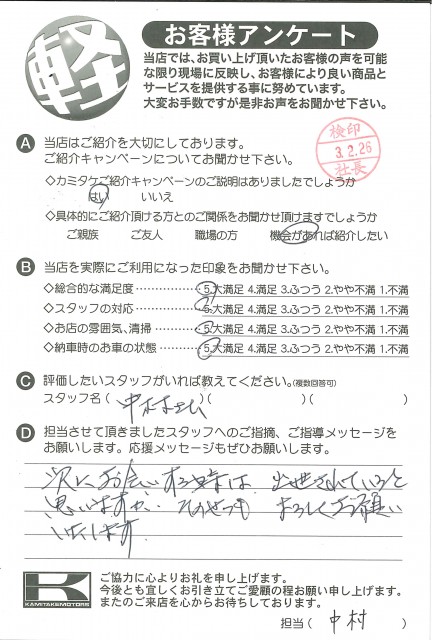 軽
お客様アンケート
当店では、お買い上げ頂いたお客様の声を可能
な限り現場に反映し、お客様により良い商品と
サービスを提供する事に努めています。
大変お手数ですが是非お声をお聞かせ下さい。
検印
3.2.26
社長
A 当店はご紹介を大切にしております。
ご紹介キャンペーンについてお聞かせ下さい。
◇カミタケご紹介キャンペーンのご説明はありましたでしょうか
はい いいえ
◇具体的にご紹介頂ける方とのご関係をお聞かせ頂けますでしょうか
ご親族 ご友人 職場の方 機会があれば紹介したい
B 当店を実際にご利用になった印象をお聞かせ下さい。
◇総合的な満足度・・・・・・・・・・・・5.大満足 4.満足 3.ふつう 2.やや不満 1.不満
◇スタッフの対応・・・・・・・・・・・・5.大満足 4.満足 3.ふつう 2.やや不満 1.不満
◇お店の雰囲気、清掃・・・・・・・・5.大満足 4.満足 3.ふつう 2.やや不満 1.不満
◇納車時のお車の状態・・・・・・・・5.大満足 4.満足 3.ふつう 2.やや不満 1.不満
C 評価したいスタッフがいれば教えてください。(複数回答可)
スタッフ名( 中村さん )( )( )
D 担当させて頂きましたスタッフへのご指摘、ご指導メッセージを
お願いします。応援メッセージもぜひお願いします。
次にお会いする時は 出世されていると
思いますが、 よろしくお願い
いたします
K
KAMITAKE MOTORS
ご協力に心よりお礼を申し上げます。
今後とも宜しくお引き立てご愛顧の程お願い申し上げます。
またのご来店を心からお待ちしております。
担当( 中村 )